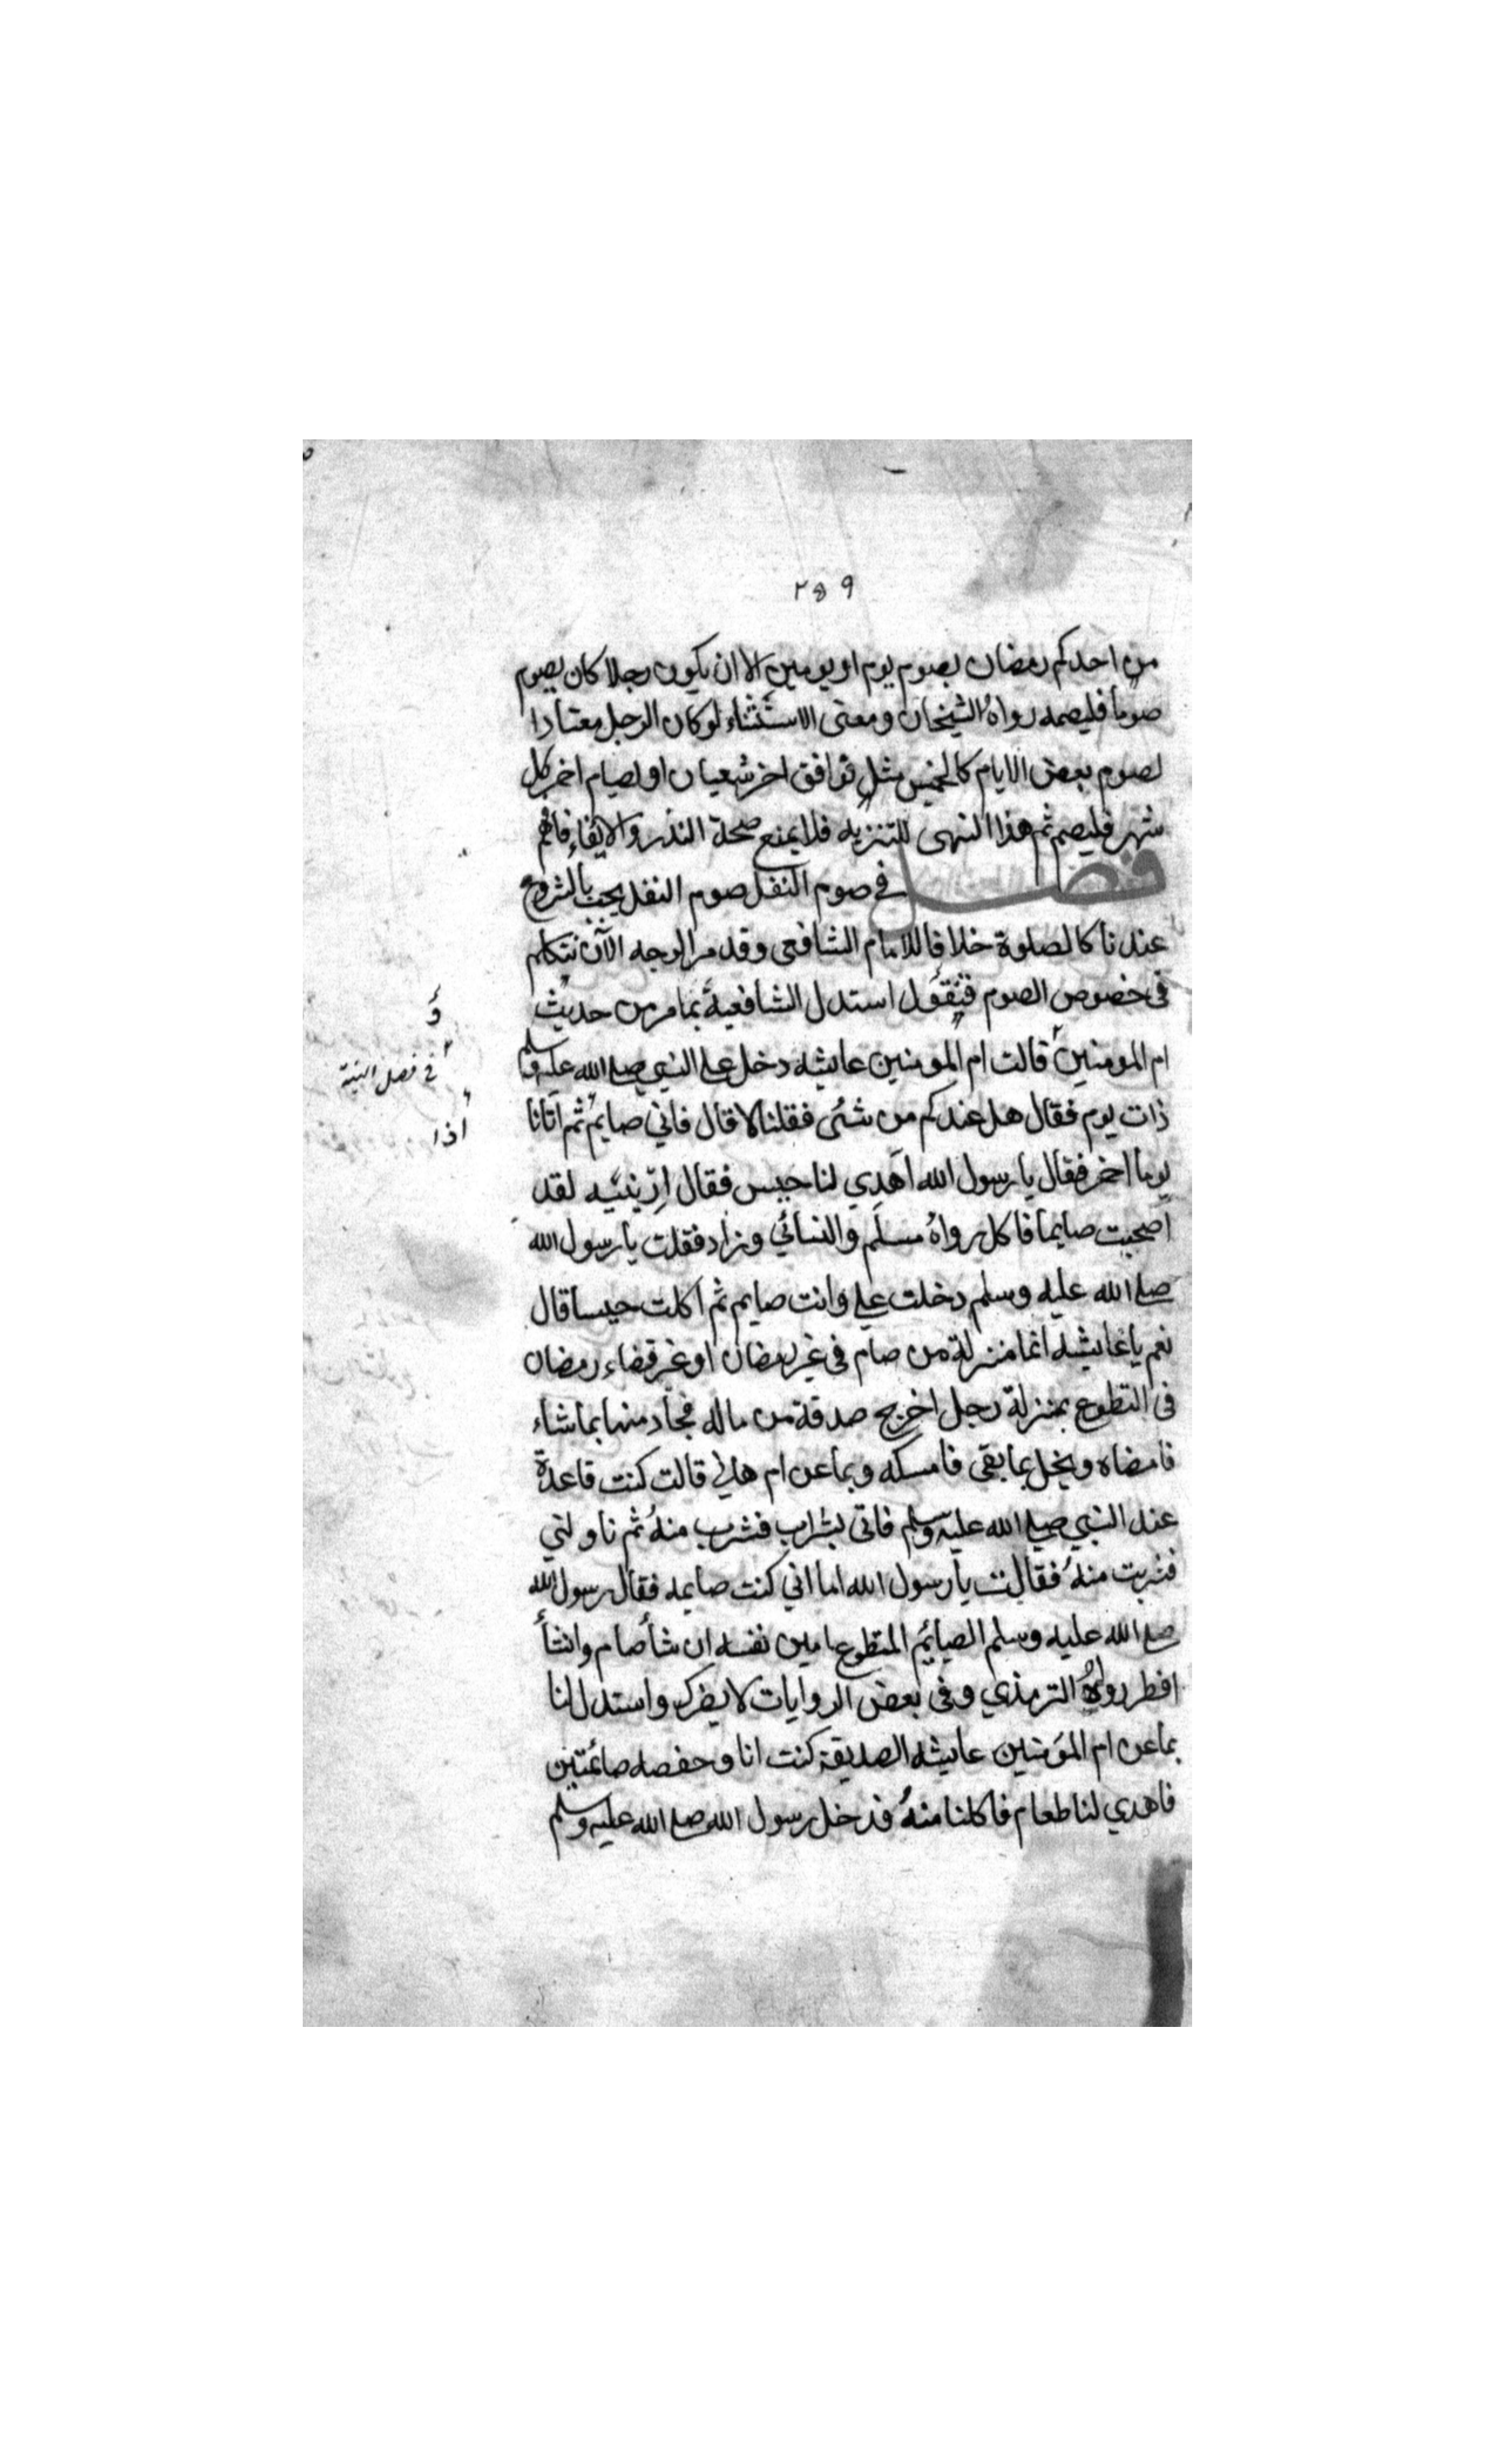 ٢٥٩
من احدكم رمضان بصوم يوم او يومين الا ان يكون رجلا كان يصوم
صوما فليصمه رواه الشيخان ومعنى الاستثناء لو كان الرجل معتادا
لصوم بعض الايام كالخميس مثلا توافق اخر شعبان او لصيام اخر كل
شهر فليصم ثم هذا النهى للتنزيه فلا يمنع صحة النذر والايفاء فافهم
فصل في صوم النفل صوم النفل يجب بالشروع
عندنا كالصلوة خلافا للامام الشافعي وقد مر الوجه الآن نتكلم
في خصوص الصوم فنقول استدل الشافعية بما مر من حديث
ام المومنين قالت ام المومنين عايشه دخل علي النبي صلے الله عليه وسلم
ذات يوم فقال هل عندكم من شئ فقلنا لا قال فاني صايم ثم اتانا
يوما اخر فقال يا رسول الله اهدي لنا حيس فقال ارينيه لقد
اصحبت صايما فاكل رواه مسلم والنسائي وزاد فقلت يا رسول الله
صلے الله عليه وسلم دخلت علي وانت صايم ثم اكلت حيسا قال
نعم يا عايشه انما منزلة من صام في غير رمضان او غير قضاء رمضان
في التطوع بمنزلة رجل اخرج صدقة من ماله فجاد منها بما شاء
فامضاه وبخل بما بقى فامسكه وبما عن ام هاني قالت كنت قاعدة
عند النبي صلے الله عليه وسلم فاتى بشراب فشرب منه ثم ناولني
فشربت منه فقالت يا رسول الله اما اني كنت صايمه فقال رسول الله
صلے الله عليه وسلم الصايم المتطوع امين نفسه ان شأ صام وانشأ
افطر رواه الترمذي وفي بعض الروايات لا يضرك واستدل لنا
بما عن ام المؤمنين عايشه الصديقة كنت انا وحفصه صائمتين
فاهدي لنا طعام فاكلنا منه فدخل رسول الله صلے الله عليه وسلم
و
في فصل النية
اذا